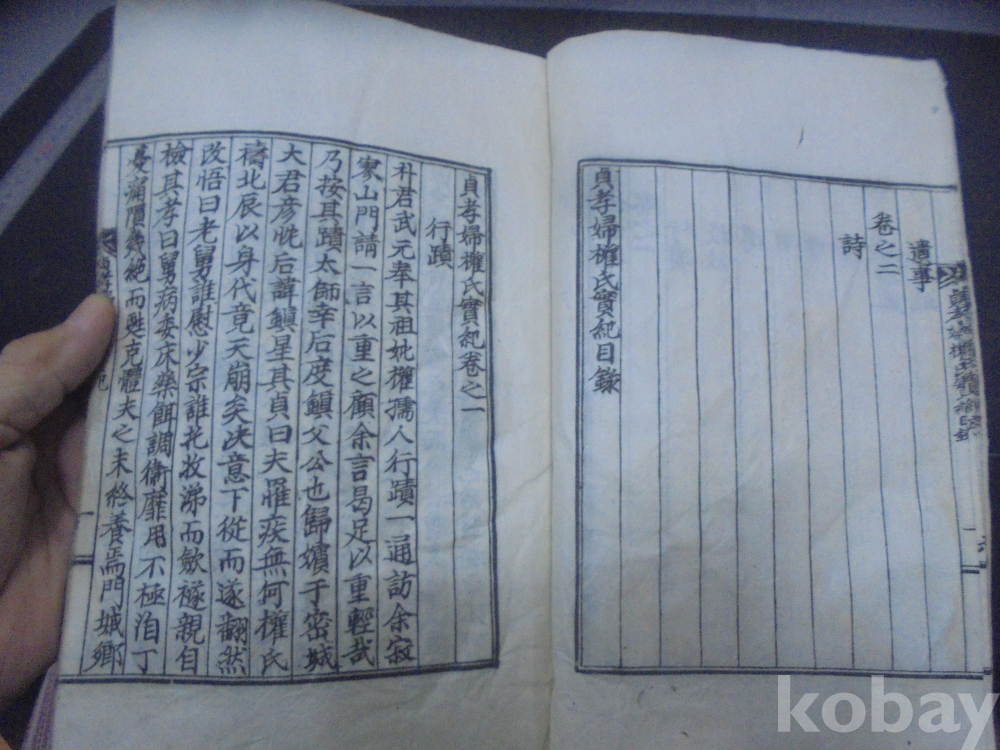 遺事
卷之二
詩
貞孝婦權氏實紀目錄
貞孝婦權氏實紀卷之一
行蹟
朴君武元奉其祖妣權孺人行蹟一通訪余寂
寞山門請一言以重之顧余言曷足以重輕哉
乃按其蹟太師幸后度鎭父公也歸嬪于密城
大君彦忱后諱鎭星其貞曰夫罹疾無何權氏
禱北辰以身代竟天崩矣决意下從而遂翻然
改悟曰老舅誰慰少宗誰托收涕而斂襚親自
檢其孝曰舅病委床藥餌調衞靡用不極洎丁
憂 絶而甦克體夫之未終養焉門城鄕
kobay